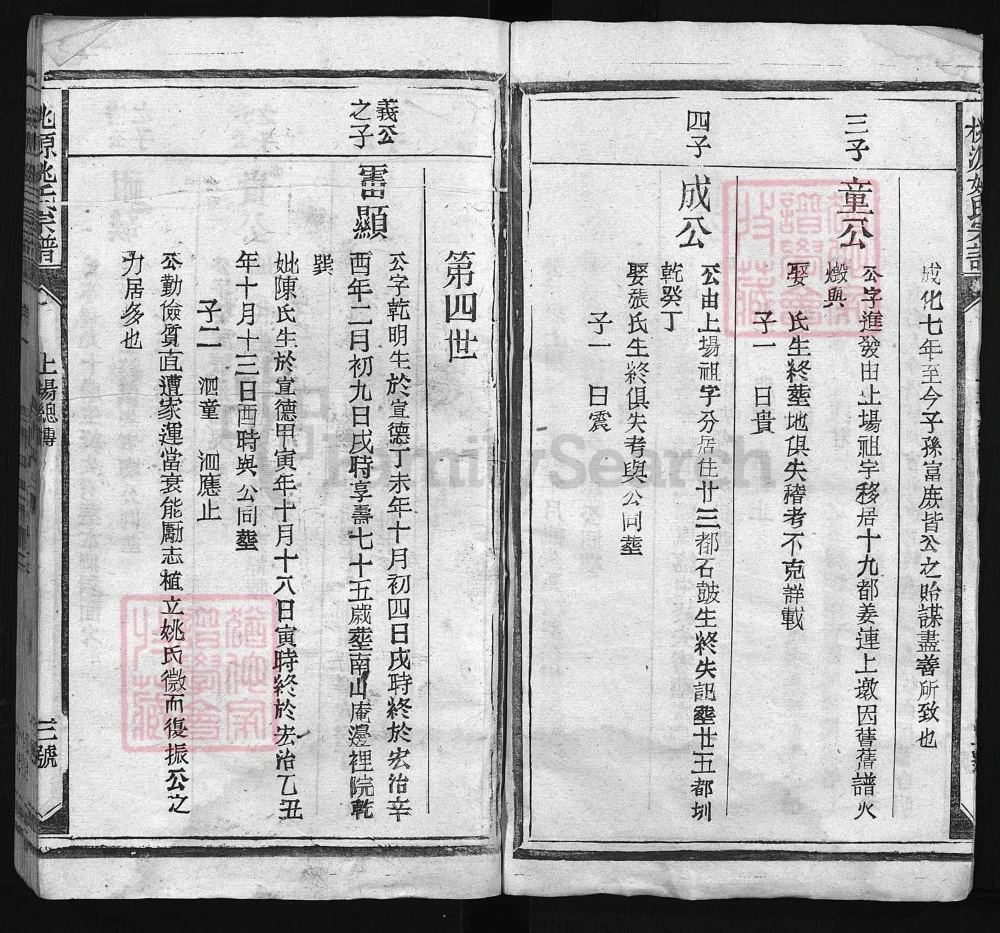 桃源姚氏宗譜
成化七年至今子孫富庶皆公之貽謀盡善所致也
三子
童公
公字進發由上場祖宇移居十九都姜連上墩因舊舊譜火
燬與
娶 氏生終塟地俱失稽考不克詳載
子一 日貴
四子
成公
公由上塲祖字分居住廿三都石皷生終失記塟廿五都圳
乾癸丁
娶張氏生終俱失考與公同塟
子一 日震
第四世
義公之子
雷顯
公字乾明生於宣德丁未年十月初四日戌時終於宏治辛
酉年二月初九日戌時享壽七十五歲塟南山庵邊裡院乾
巽
妣陳氏生於宣德甲寅年十月十八日寅時終於宏治乙丑
年十月十三日酉時與公同塟
子二 泗童 泗應止
公勤儉質直遭家運當衰能勵志植立姚氏微而復振公之
力居多也
桃源姚氏宗譜
上場總傳
三號
FamilySearch